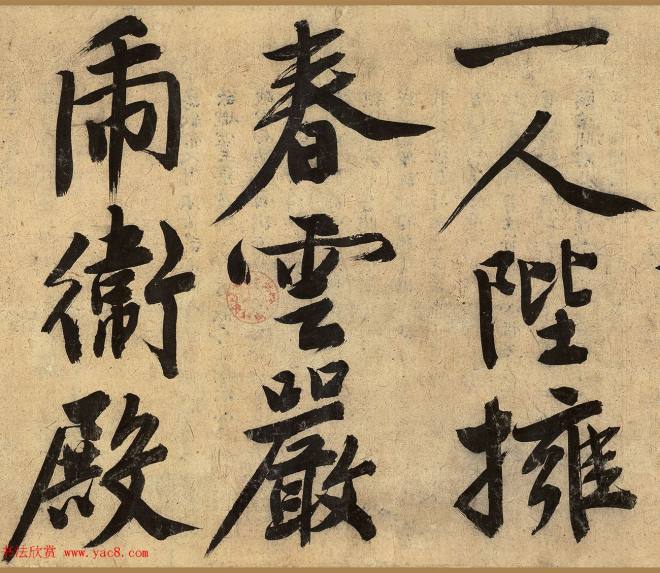 一人陛擁
春雲嚴
乕衞殿
法欣赏 www.yac8.com